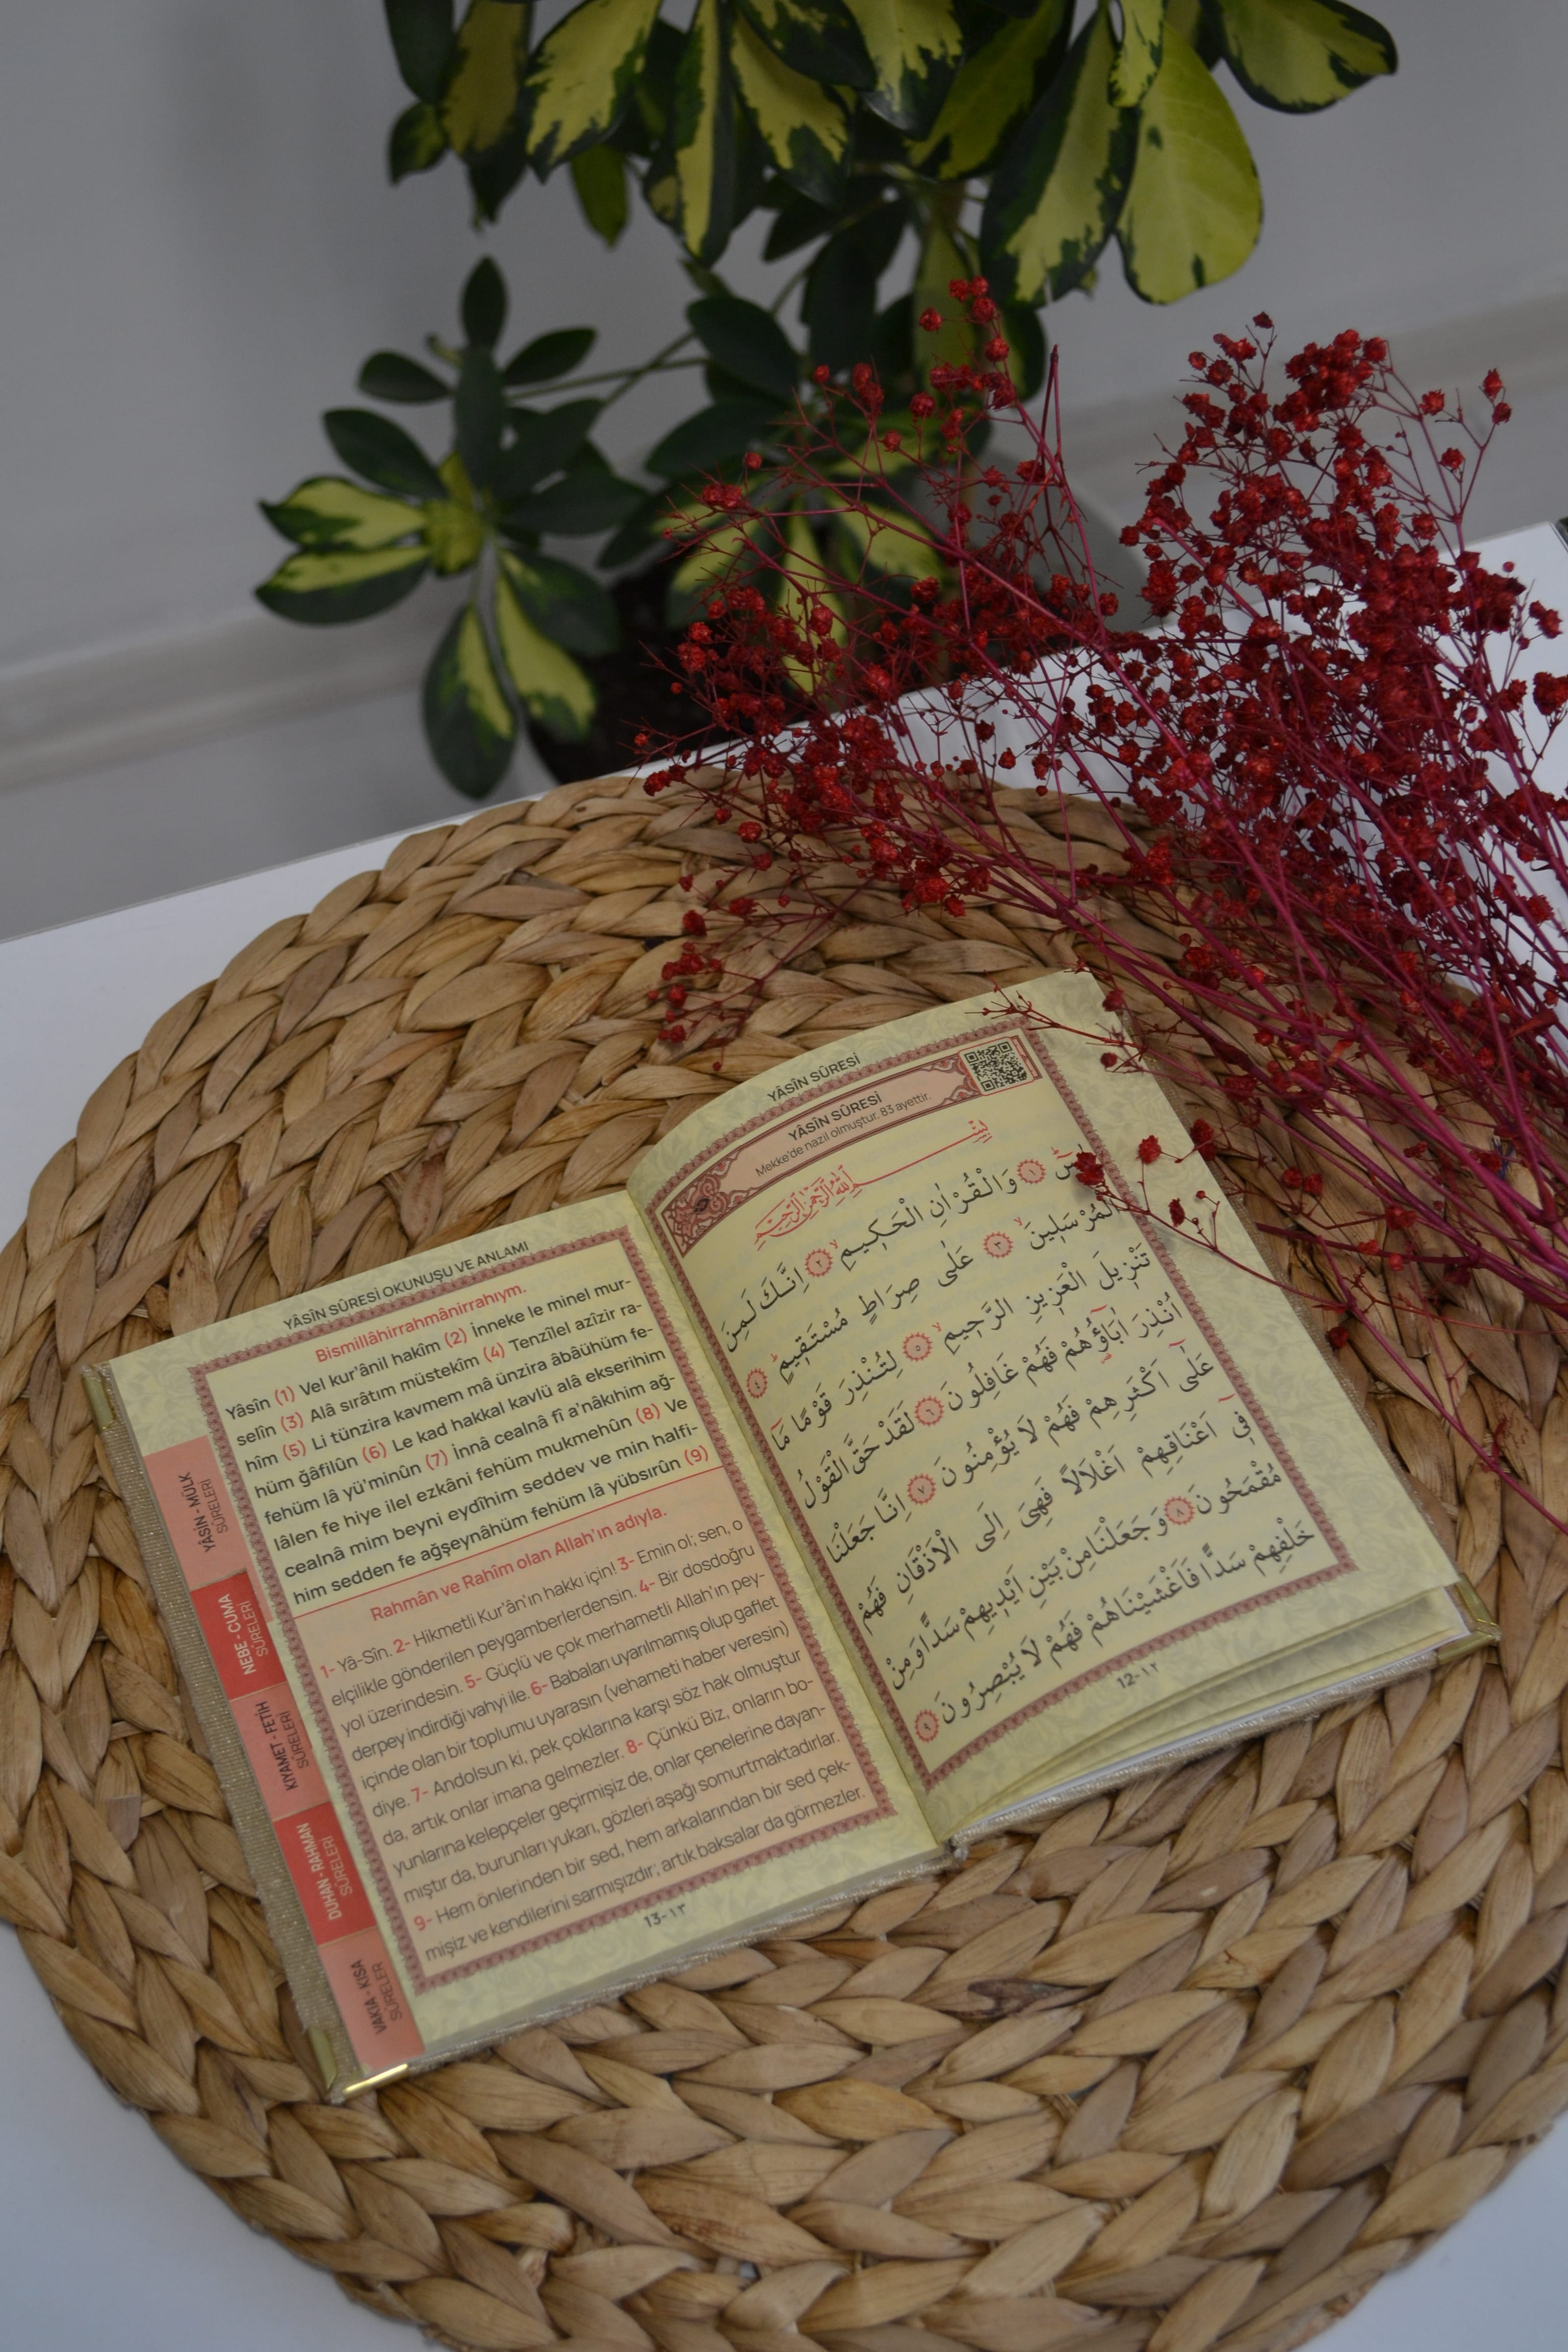 YÂSÎN SÛRESİ
YÂSÎN SÛRESİ
Mekke'de nazil olmuştur. 83 ayettir.
بِسْمِ اللّٰهِ الرَّحْمٰنِ الرَّحِيمِ
يٰسٓ ﴿١﴾ وَالْقُرْاٰنِ الْحَكِيمِ ﴿٢﴾ اِنَّكَ لَمِنَ
الْمُرْسَلِينَ ﴿٣﴾ عَلٰى صِرَاطٍ مُسْتَقِيمٍ ﴿٤﴾
تَنْزِيلَ الْعَزِيزِ الرَّحِيمِ ﴿٥﴾ لِتُنْذِرَ قَوْمًا مَٓا
اُنْذِرَ اٰبَٓاؤُهُمْ فَهُمْ غَافِلُونَ ﴿٦﴾ لَقَدْ حَقَّ الْقَوْلُ
عَلٰٓى اَكْثَرِهِمْ فَهُمْ لَا يُؤْمِنُونَ ﴿٧﴾ اِنَّا جَعَلْنَا
فِٓى اَعْنَاقِهِمْ اَغْلَالًا فَهِىَ اِلَى الْاَذْقَانِ فَهُمْ
مُقْمَحُونَ ﴿٨﴾ وَجَعَلْنَا مِنْ بَيْنِ اَيْدِيهِمْ سَدًّا وَمِنْ
خَلْفِهِمْ سَدًّا فَاَغْشَيْنَاهُمْ فَهُمْ لَا يُبْصِرُونَ ﴿٩﴾
12-١٢
YÂSÎN SÛRESİ OKUNUŞU VE ANLAMI
Bismillâhirrahmânirrahıym.
Yâsîn (1) Vel kur'ânil hakîm (2) İnneke le minel mur-
selîn (3) Alâ sırâtım müstekîm (4) Tenzîlel azîzir ra-
hîm (5) Li tünzira kavmem mâ ünzira âbâühüm fe-
hüm ğâfilûn (6) Le kad hakkal kavlü alâ ekserihim
fehüm lâ yü'minûn (7) İnnâ cealnâ fî a'nâkıhim ağ-
lâlen fe hiye ilel ezkâni fehüm mukmehûn (8) Ve
cealnâ mim beyni eydîhim seddev ve min halfi-
him sedden fe ağşeynâhüm fehüm lâ yübsırûn (9)
Rahmân ve Rahîm olan Allah'ın adıyla.
1- Yâ-Sîn. 2- Hikmetli Kur'ân'ın hakkı için! 3- Emin ol; sen, o
elçilikle gönderilen peygamberlerdensin. 4- Bir dosdoğru
yol üzerindesin. 5- Güçlü ve çok merhametli Allah'ın pey-
derpey indirdiği vahyi ile. 6- Babaları uyarılmamış olup gaflet
içinde olan bir toplumu uyarasın (vehameti haber veresin)
diye. 7- Andolsun ki, pek çoklarına karşı söz hak olmuştur
da, artık onlar imana gelmezler. 8- Çünkü Biz, onların bo-
yunlarına kelepçeler geçirmişiz de, onlar çenelerine dayan-
mıştır da, burunları yukarı, gözleri aşağı somurtmaktadırlar.
9- Hem önlerinden bir sed, hem arkalarından bir sed çek-
mişiz ve kendilerini sarmışızdır; artık baksalar da görmezler.
13-١٣
YÂSİN - MÜLK
SÛRELERİ
NEBE - CUMA
SÛRELERİ
KIYAMET - FETİH
SÛRELERİ
DUHAN - RAHMAN
SÛRELERİ
VAKIA - KISA
SÛRELER